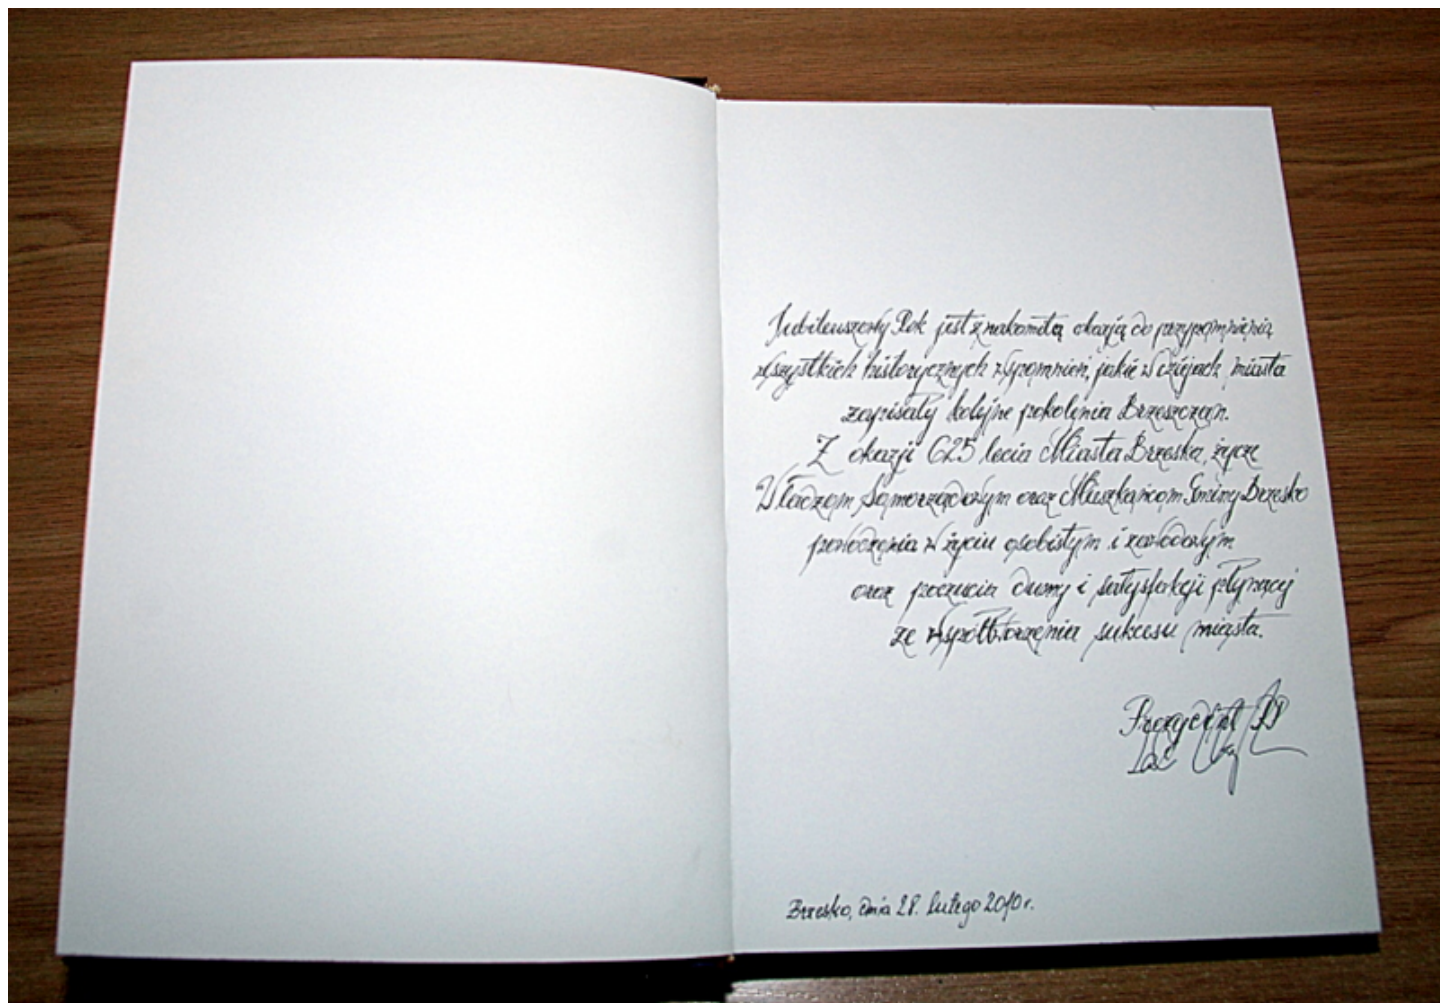 Jubileuszowy Rok jest znakomitą okazją do przypomnienia
wszystkich historycznych wspomnień, jakie w dziejach miasta
zapisały kolejne pokolenia Brzeszczan.
Z okazji 625 lecia Miasta Brzeska, życzę
Władzom Samorządowym oraz Mieszkańcom Gminy Brzesko
powodzenia w życiu osobistym i zawodowym
oraz poczucia dumy i satysfakcji płynącej
ze współtworzenia sukcesu miasta.
Prezydent RP
Brzesko, dnia 28. lutego 2010 r.